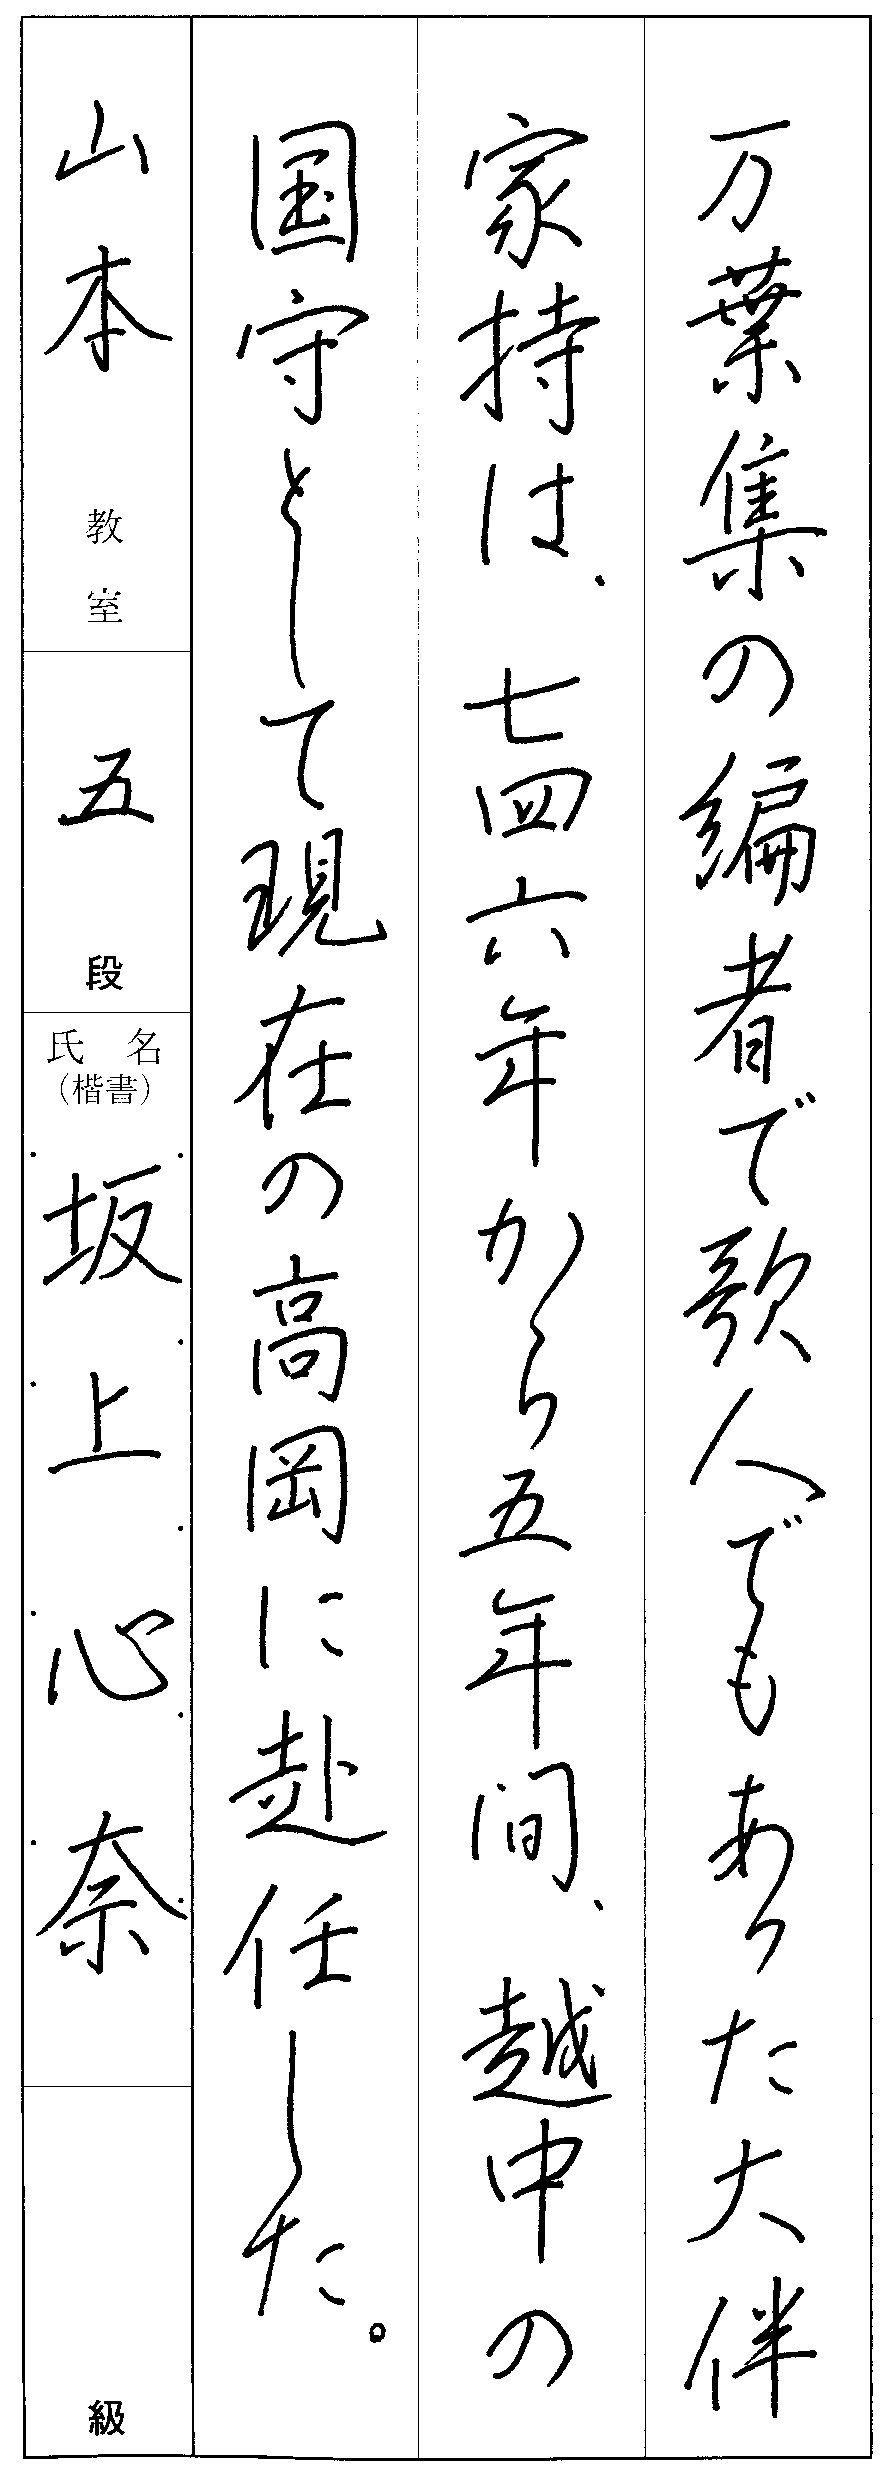 万葉集の編者で歌人でもあった大伴
家持は、七四六年から五年間、越中の
国守として現在の高岡に赴任した。
山本教室
五段
氏名
(楷書)
坂上心奈
級